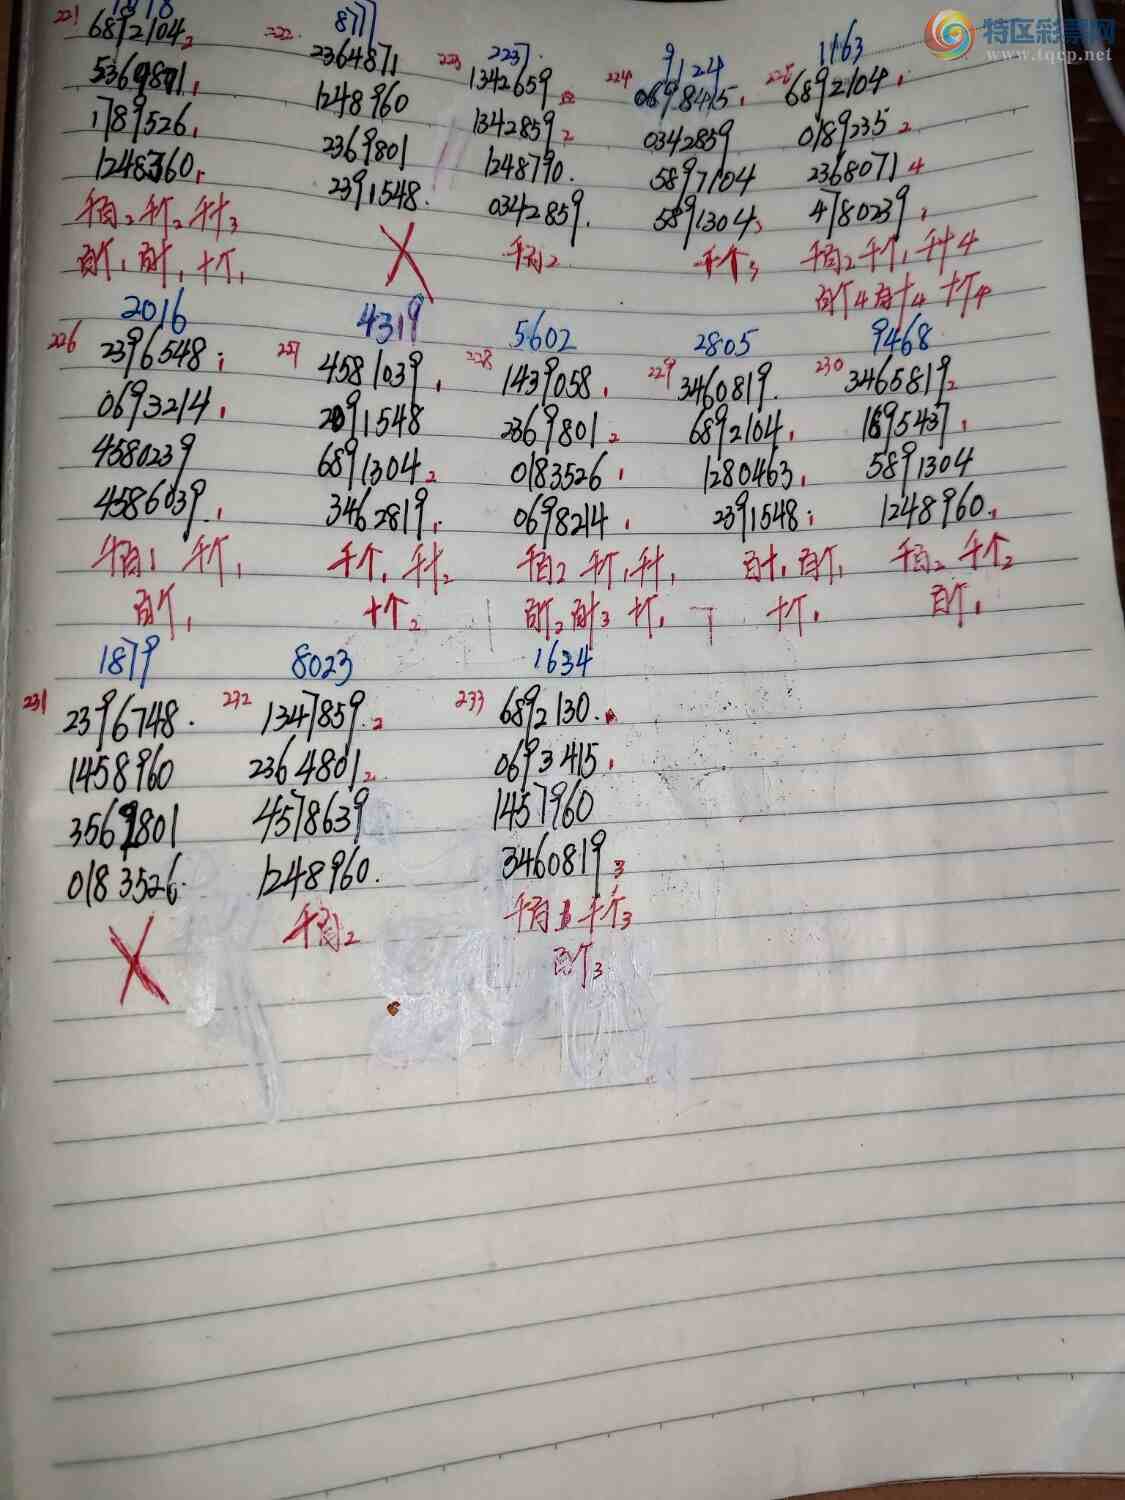 特区彩票网
www.tqcp.net
221
6892104 2
5369801 1
1789526 1
1248360 1
千百2 千个2 千十3
百个1 百十1 十个1
222 8777
2364871
1248960
2369801
2391548.
X
223 2237.
1342659
1342859 2
1248790.
0342859.
千百2
224 9124
0698415 1
0342859
5897104
5891304 3
千个3
225 1163
6892104 1
0189235 2
2368071 4
4780239 1
千百2 千个1 千十4
百个4 百十4 十个4
226 2016
2396548 1
0693214 1
4580239
4586039 1
千百1 千个1
百个1
227 4319
4581039 1
2091548
6891304 2
3462819 1
千个1 千十2
十个2
228 5602
1439058 1
2369801 2
0183526 1
0698214 1
千百2 千个1 千十1
百个2 百十3 十个1
229 2805
3460819.
6892104 1
1280463 1
2391548 1
百十1 百个1
十个1
230 9468
3465819 2
1895437 1
5891304
1248960 1
千百2 千个2
百个1
231 1879
2396748.
1458960
3569801
0183526.
X
232 8023
1347859 2
2364801 2
4578639
1248960.
千百2
233 1634
6892130.
0693415 1
1457960
3460819 3
千百1 千个3
百个3